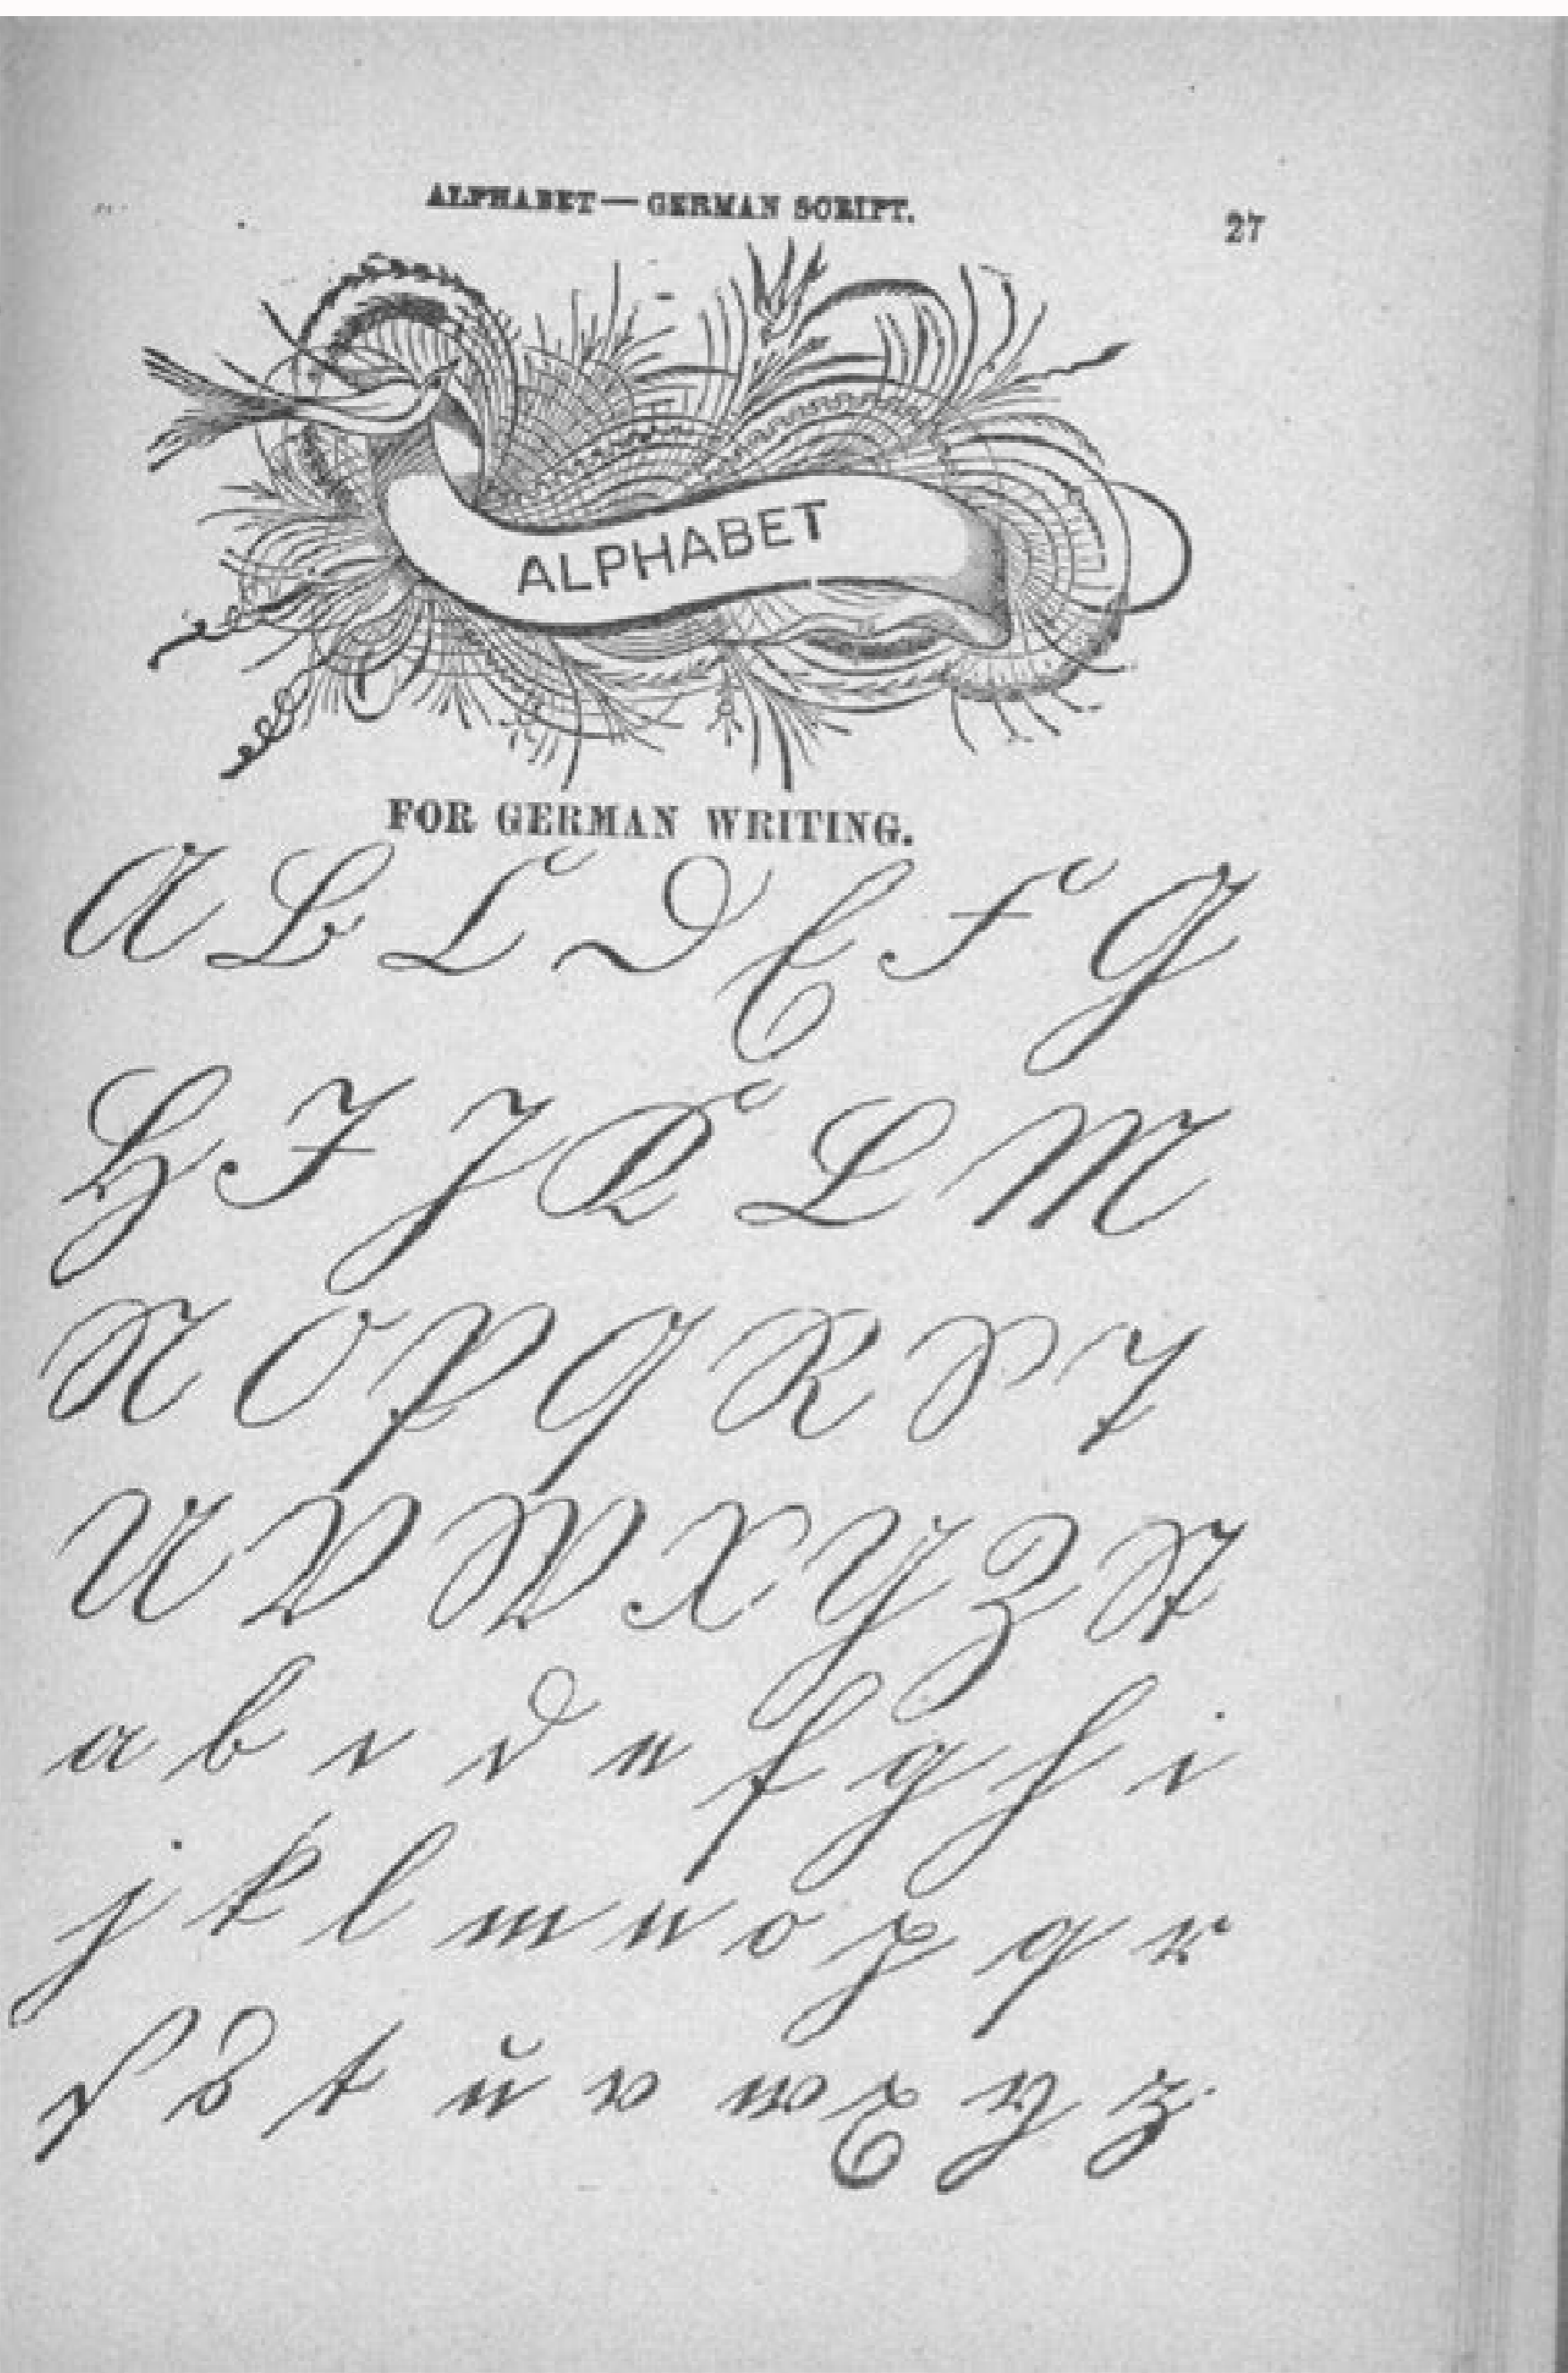 ALPHABET—GERMAN SCRIPT.
27
ALPHABET
FOR GERMAN WRITING.
A B C D E F G
H I J K L M
N O P Q R S T
U V W X Y Z St
a b c d e f g h i
j k l m n o p q r
ſ s t u v w x y z.